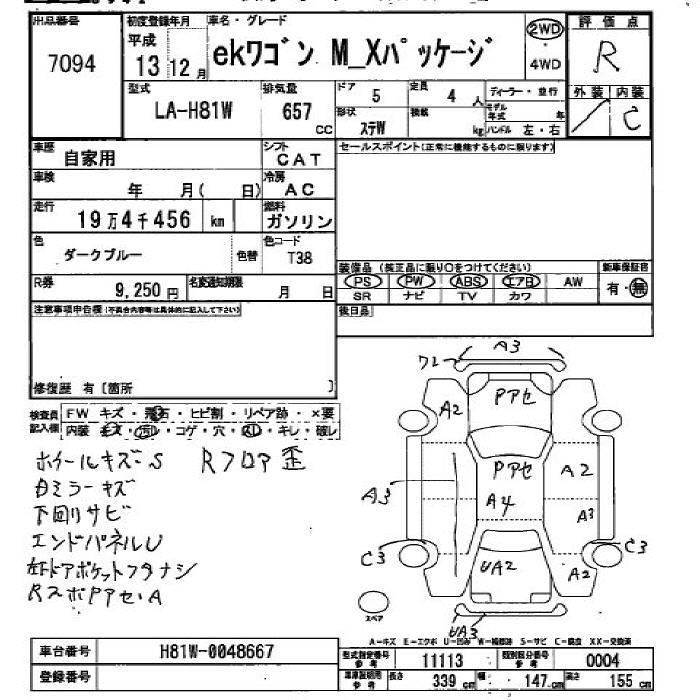 出品番号 初度登録年月 車名・グレード 2WD 評価点
7094 平成 13 12月 ekワゴン M_Xパッケージ 4WD R
型式 排気量 ドア 5 定員 4 人 ディーラー・並行 外装 内装
LA-H81W 657 cc 形状 ステW 積載 kg モデル年式 年 ハンドル 左・右 C
車歴 自家用 シフト CAT セールスポイント(正常に機能するものに限ります)
車検 年 月( 日) 冷房 AC
走行 19万4千456 km 燃料 ガソリン
色 ダークブルー 色替 色コード T38
装備品 (純正品に限り○をつけてください) 新車保証書
R券 9,250円 名変通知期限 月 日 PS PW ABS エアB AW 有・無
SR ナビ TV カワ
注意事項申告欄(不具合内容等は具体的に記入して下さい) 後日品
修復歴 有〔箇所 〕
検査員記入欄 FW キズ・飛石・ヒビ割・リペア跡・×要
内装 キズ・汚レ・コゲ・穴・スレ・キレ・破レ
ホイールキズ・S Rフロア歪
白ミラーキズ
下回りサビ
エンドパネルU
左ドアポケットフタナシ
RスポPアセ・A
A3
ワレ
A2 Pアセ
Pアセ A2
A3 A4 A3
C3 C3
UA2 A2
UA3
スペア
A-キズ E-エクボ U-凹み W-補修跡 S-サビ C-腐食 XX-交換済
車台番号 H81W-0048667 型式指定番号 参考 11113 類別区分番号 参考 0004
登録番号 車庫証明用 参考 長さ 339 cm 幅 147 cm 高さ 155 cm